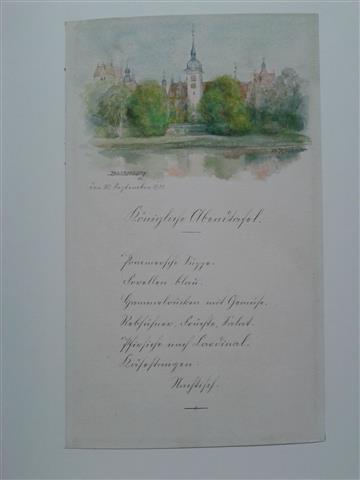 den September
Königliche Abendtafel.
Pommersche Suppe.
Forellen blau.
Hammelrücken mit Gemüse.
Rebhühner, Früchte, Salat.
Pfirsiche nach Cardinal.
Käsestangen.
Nachtisch.